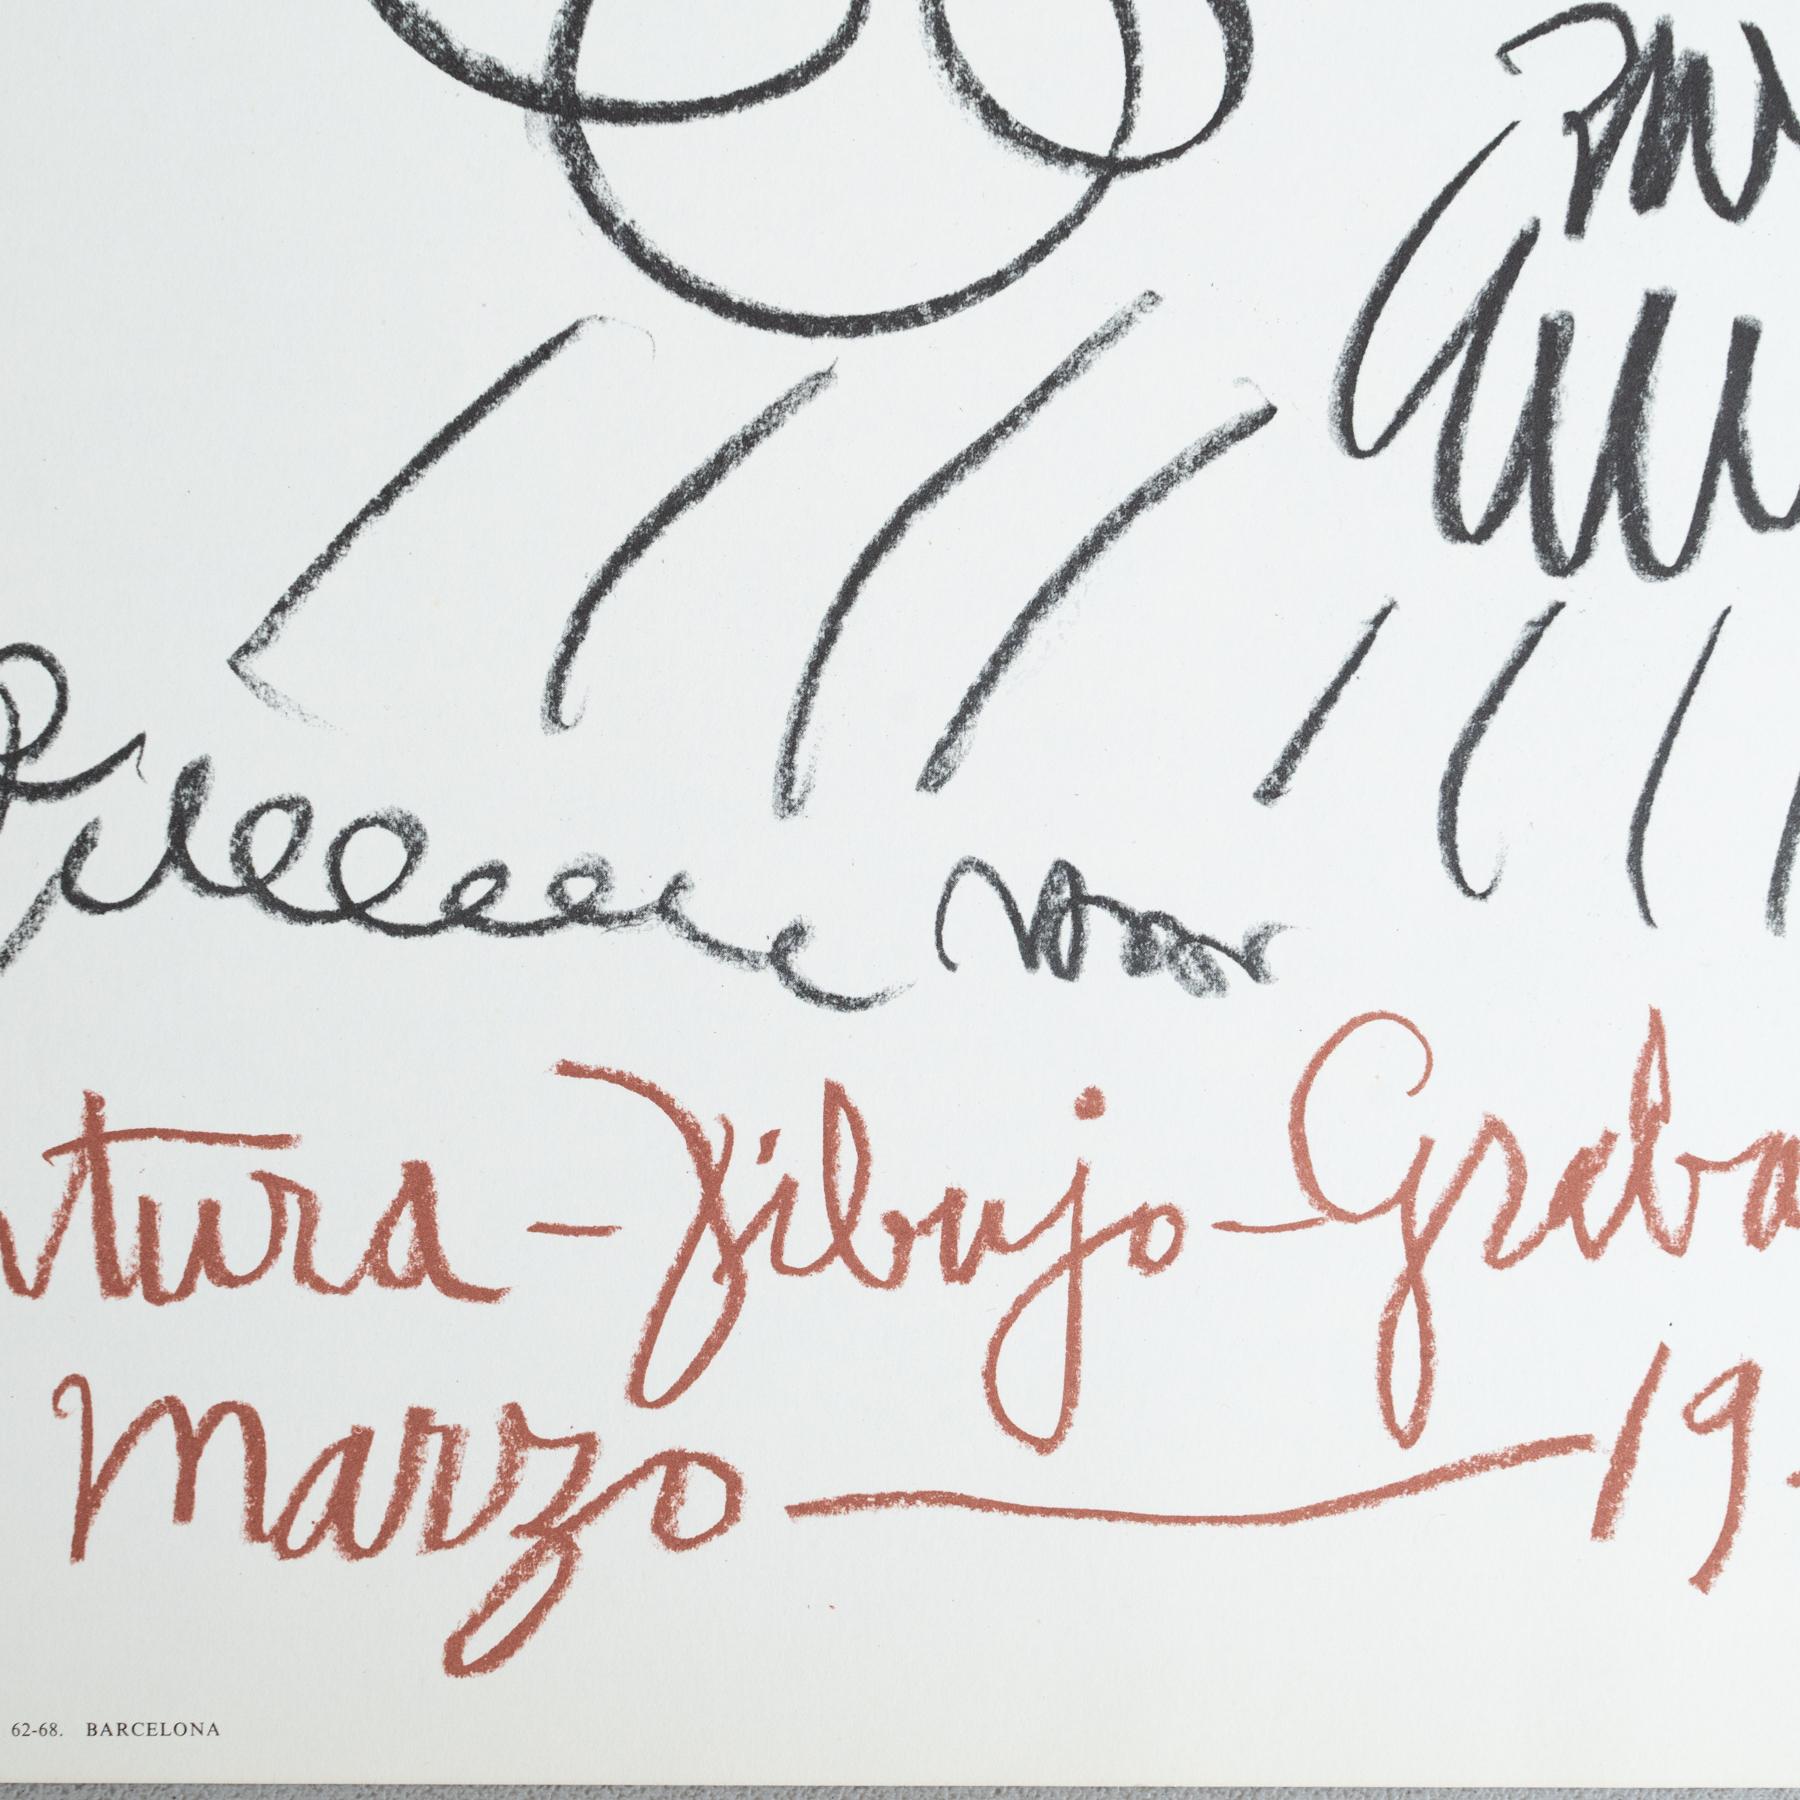 ntura - Dibujo - Graba
Marzo — 19
62-68. BARCELONA